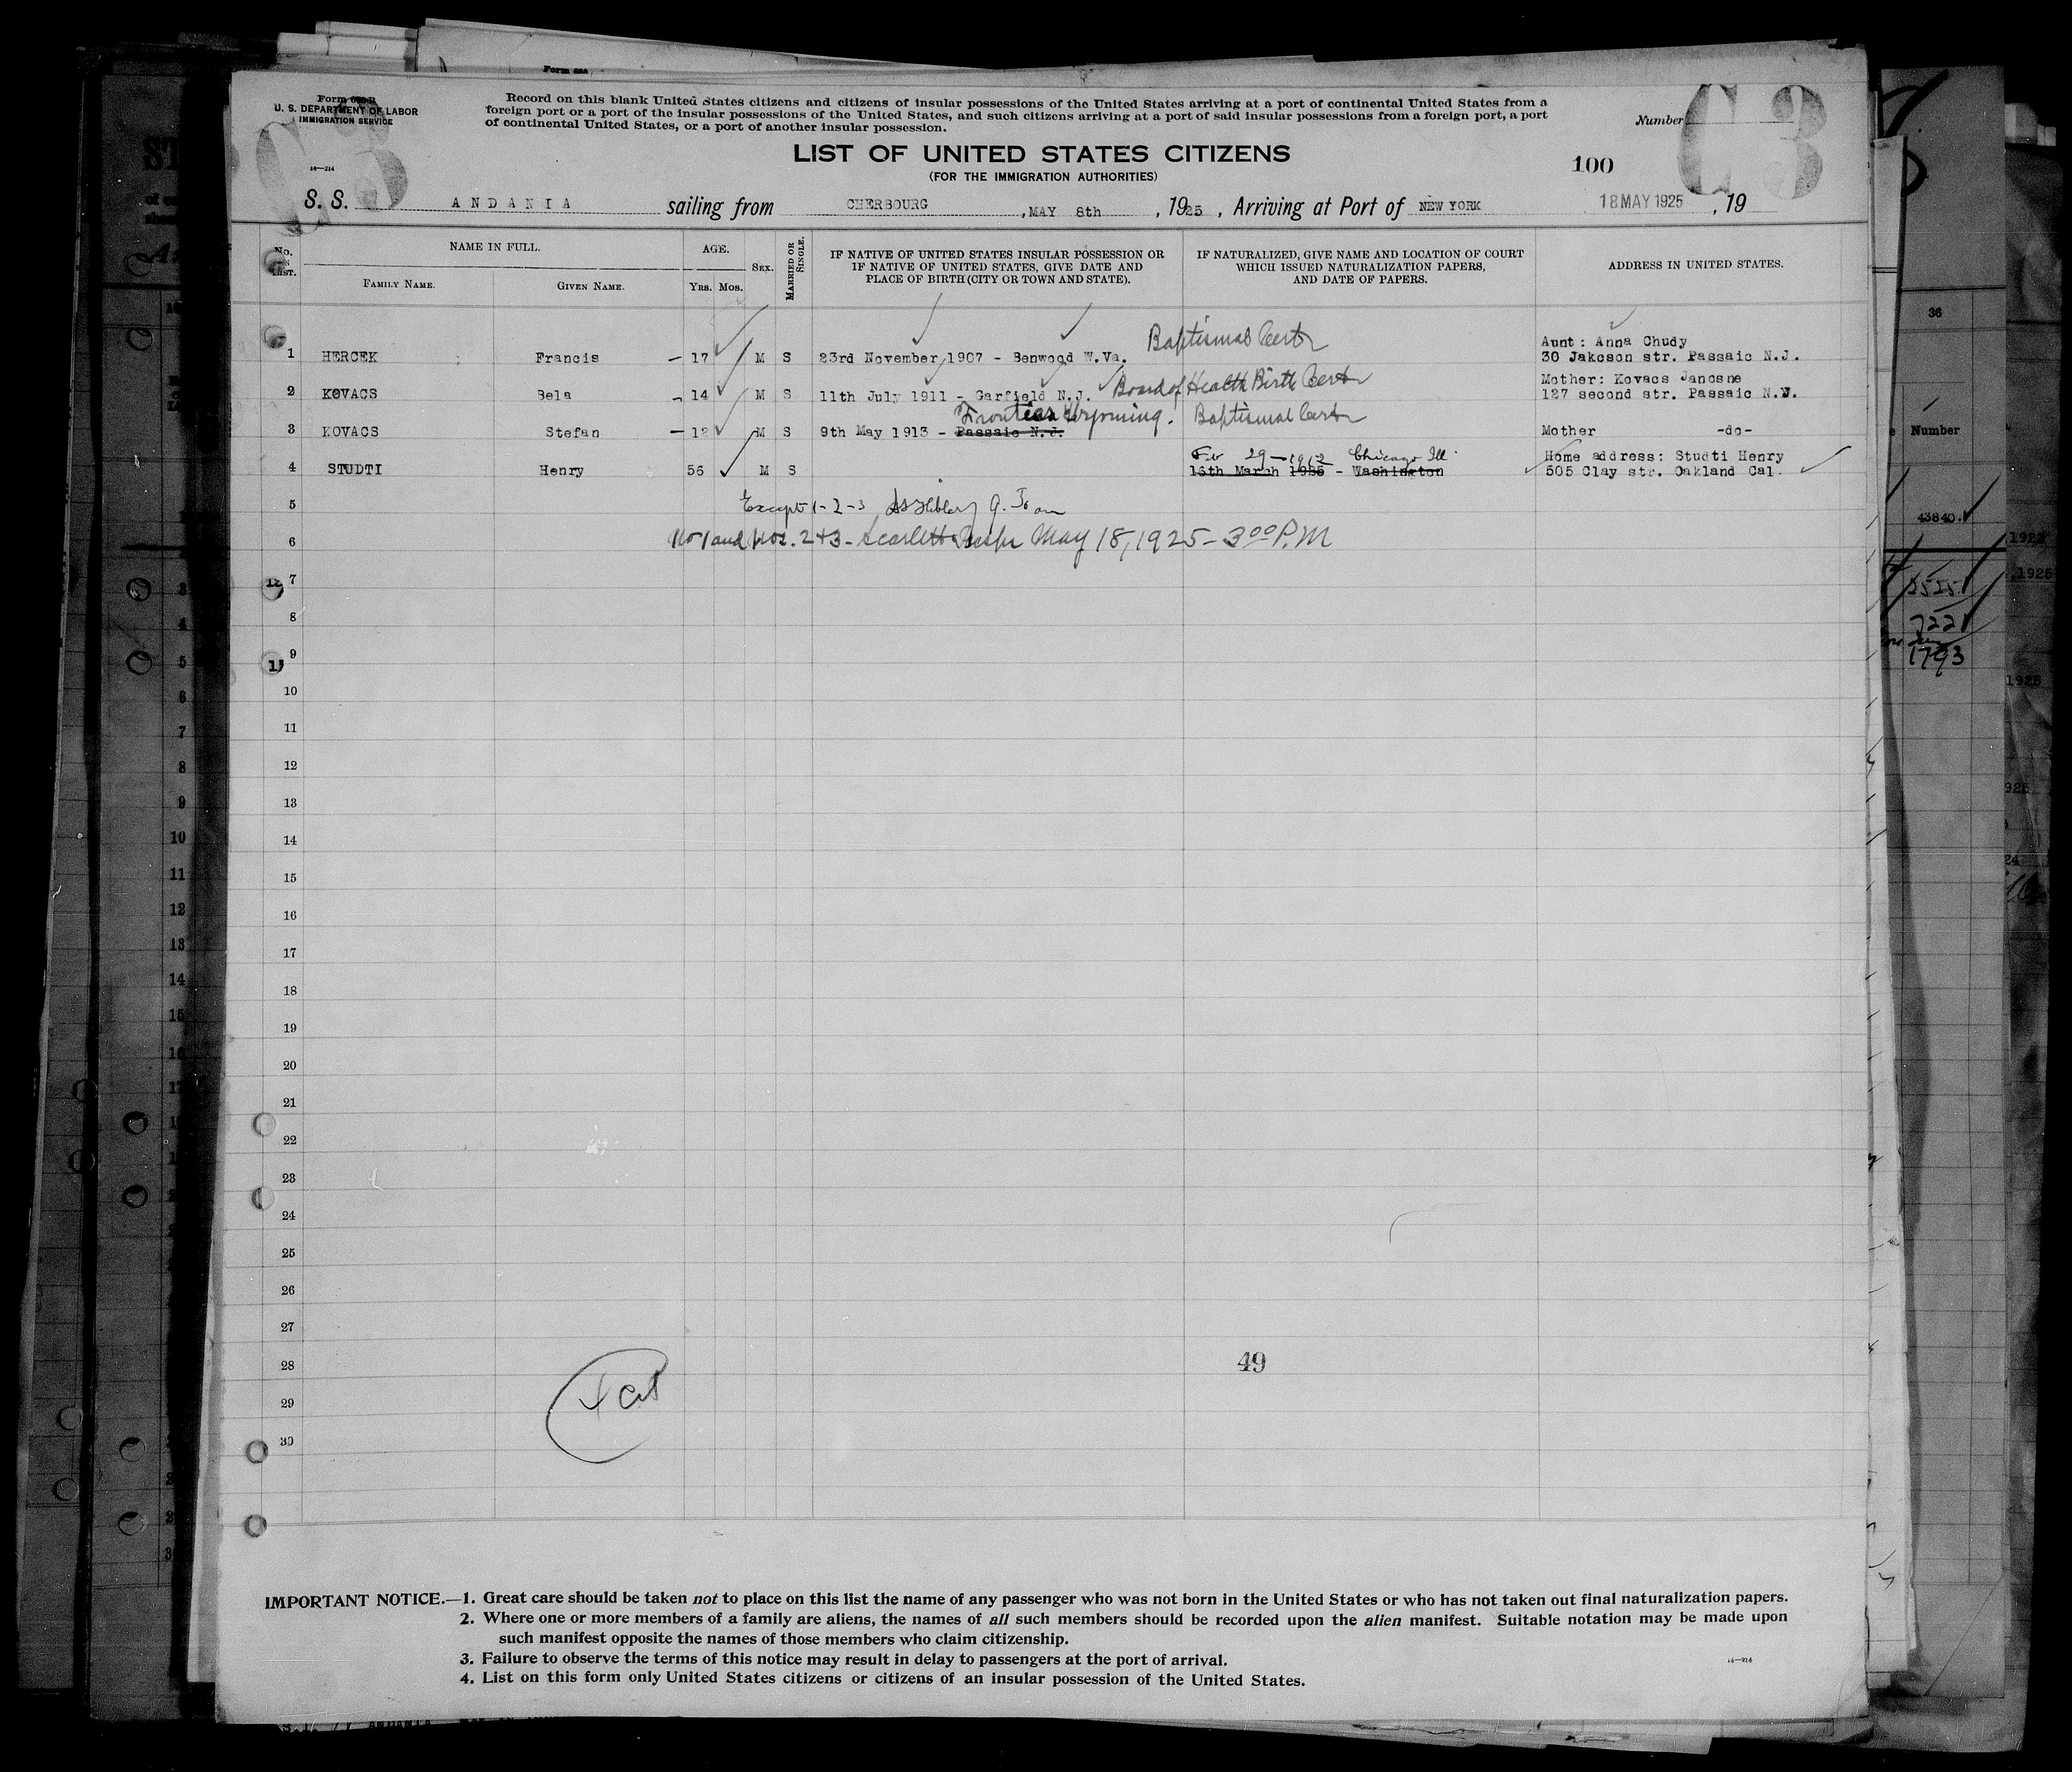 Form 630 B
U. S. DEPARTMENT OF LABOR
IMMIGRATION SERVICE
14—214
Record on this blank United States citizens and citizens of insular possessions of the United States arriving at a port of continental United States from a
foreign port or a port of the insular possessions of the United States, and such citizens arriving at a port of said insular possessions from a foreign port, a port
of continental United States, or a port of another insular possession.
Number
C 3
LIST OF UNITED STATES CITIZENS
(FOR THE IMMIGRATION AUTHORITIES)
100
S. S. ANDANIA sailing from CHERBOURG, MAY 8th, 1925, Arriving at Port of NEW YORK 18 MAY 1925, 19
No. ON LIST. NAME IN FULL. FAMILY NAME. GIVEN NAME. AGE. Yrs. Mos. SEX. MARRIED OR SINGLE. IF NATIVE OF UNITED STATES INSULAR POSSESSION OR IF NATIVE OF UNITED STATES, GIVE DATE AND PLACE OF BIRTH (CITY OR TOWN AND STATE). IF NATURALIZED, GIVE NAME AND LOCATION OF COURT WHICH ISSUED NATURALIZATION PAPERS, AND DATE OF PAPERS. ADDRESS IN UNITED STATES.
Baptismal Cert
Aunt: Anna Chudy
1 HERCEK Francis — 17 M S 23rd November 1907 - Benwood W.Va. 30 Jakcson str. Passaic N.J.
Board of Health Birth Cert
Mother: Kovacs Janosne
2 KOVACS Bela - 14 M S 11th July 1911 - Garfield N.J. 127 second str. Passaic N.J.
Frontier Wyoming. Baptismal Cert
3 KOVACS Stefan — 12 M S 9th May 1913 - Passaic N.J. Mother -do-
Feb 29—1912 Chicago Ill.
Home address: Studti Henry
4 STUDTI Henry 56 M S 16th March 1925 - Washington 505 Clay str. Oakland Cal.
5 Except 1-2-3
6 No 1 and Nos. 2+3 - Scarlett Inspr May 18, 1925 - 3 00 P.M
7
8
9
10
11
12
13
14
15
16
17
18
19
20
21
22
23
24
25
26
27
28
49
29
30
IMPORTANT NOTICE.—1. Great care should be taken not to place on this list the name of any passenger who was not born in the United States or who has not taken out final naturalization papers.
2. Where one or more members of a family are aliens, the names of all such members should be recorded upon the alien manifest. Suitable notation may be made upon
such manifest opposite the names of those members who claim citizenship.
3. Failure to observe the terms of this notice may result in delay to passengers at the port of arrival.
4. List on this form only United States citizens or citizens of an insular possession of the United States.
14—214
36
Number
43840
1793